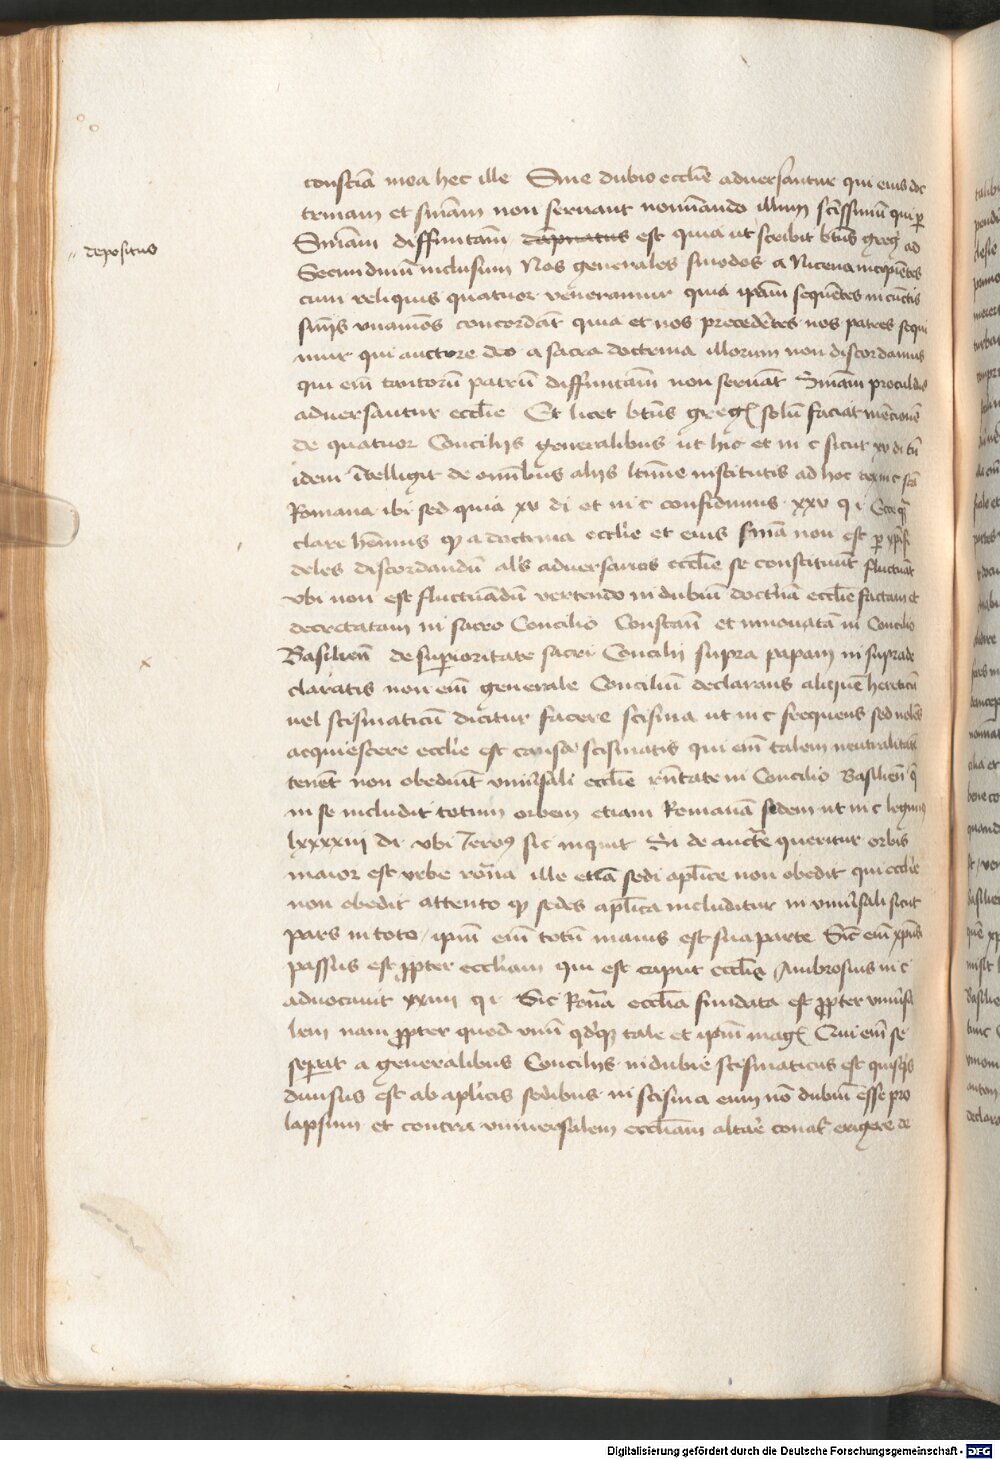 consciā mea hec ille Sine dubio eccłie adversantur qui eius doc
trinam et sniām non servant nominando illum scissimū qui p
Sniām diffinitam dāpnatus est quia ut scribit btūs greg ad
depositus
Secundinū inclusum Nos generales sinodos a Nicena incipientes
cum reliquis quatuor veneramur quia ipām sequētes in cunctis
unanimos concordāt quia et nos precedētes nos patres sequi
mur qui auctore deo a sacra doctrina illorum non discordamus
qui eīn tantorū patrū diffinitam non servāt Sniām procul du
adversantur eccłie Et licet btūs greg solū faciat mencionē
de quatuor Concilijs generalibus ut hic et in c sicut xv di tn̄
idem ītelligit de omībus alijs ltīme institutis ad hoc c sctā
Romana ibi sed quia xv di et in c confidimus xxv q i
clare hēmus q a doctrina eccłie et eius sniā non est p xpīfi
deles discordandū alīs adversarios eccłie se constituūt fluctuāt
ubi non est fluctuādū vertendo in dubiū doctrīā eccłie factam et
decretatam in sacro Concilio Constan̄ et innovatā in Concilio
Basilien̄ de superioritate sacri Concilij supra papam in suprade
claratis non eīn generale Conciliū declarans aliquē hereticū
vel scismaticū dicitur facere scisma ut in c frequens sed nolle
acquiescere eccłie est causa scismatis qui eīn talem neutralitatē
tenēt non obediūt univsali eccłie in Concilio Basilien̄ q
in se includit totum orbem etiam Romanā sedem ut in c legimus
lxxxxiii di ubi Jeros sic inquit Si de aucte queritur orbis
maior est urbe rona ille etiā sedi aplice non obedit qui eccłie
non obedit attento q sedes aplica includitur in univsali sicut
pars in toto / ipm̄ eīn totū maius est sua parte Sic eīn xpūs
passus est ppter eccliam qui est caput ecclie Ambrosius in c
advocavit xxiii q i Sic Rona ecclia fundata est ppter univsa
lem nam ppter quod unū qdq tale et ipm̄ mag Qui eīn se
sepat a generalibus Concilijs indubie scismaticus est quisqs
divisus est ab aplicis sedibus in scisma eum nō dubiū esse pro
lapsum et contra universalem eccliam altare conat erigere de
Digitalisierung gefördert durch die Deutsche Forschungsgemeinschaft - DFG